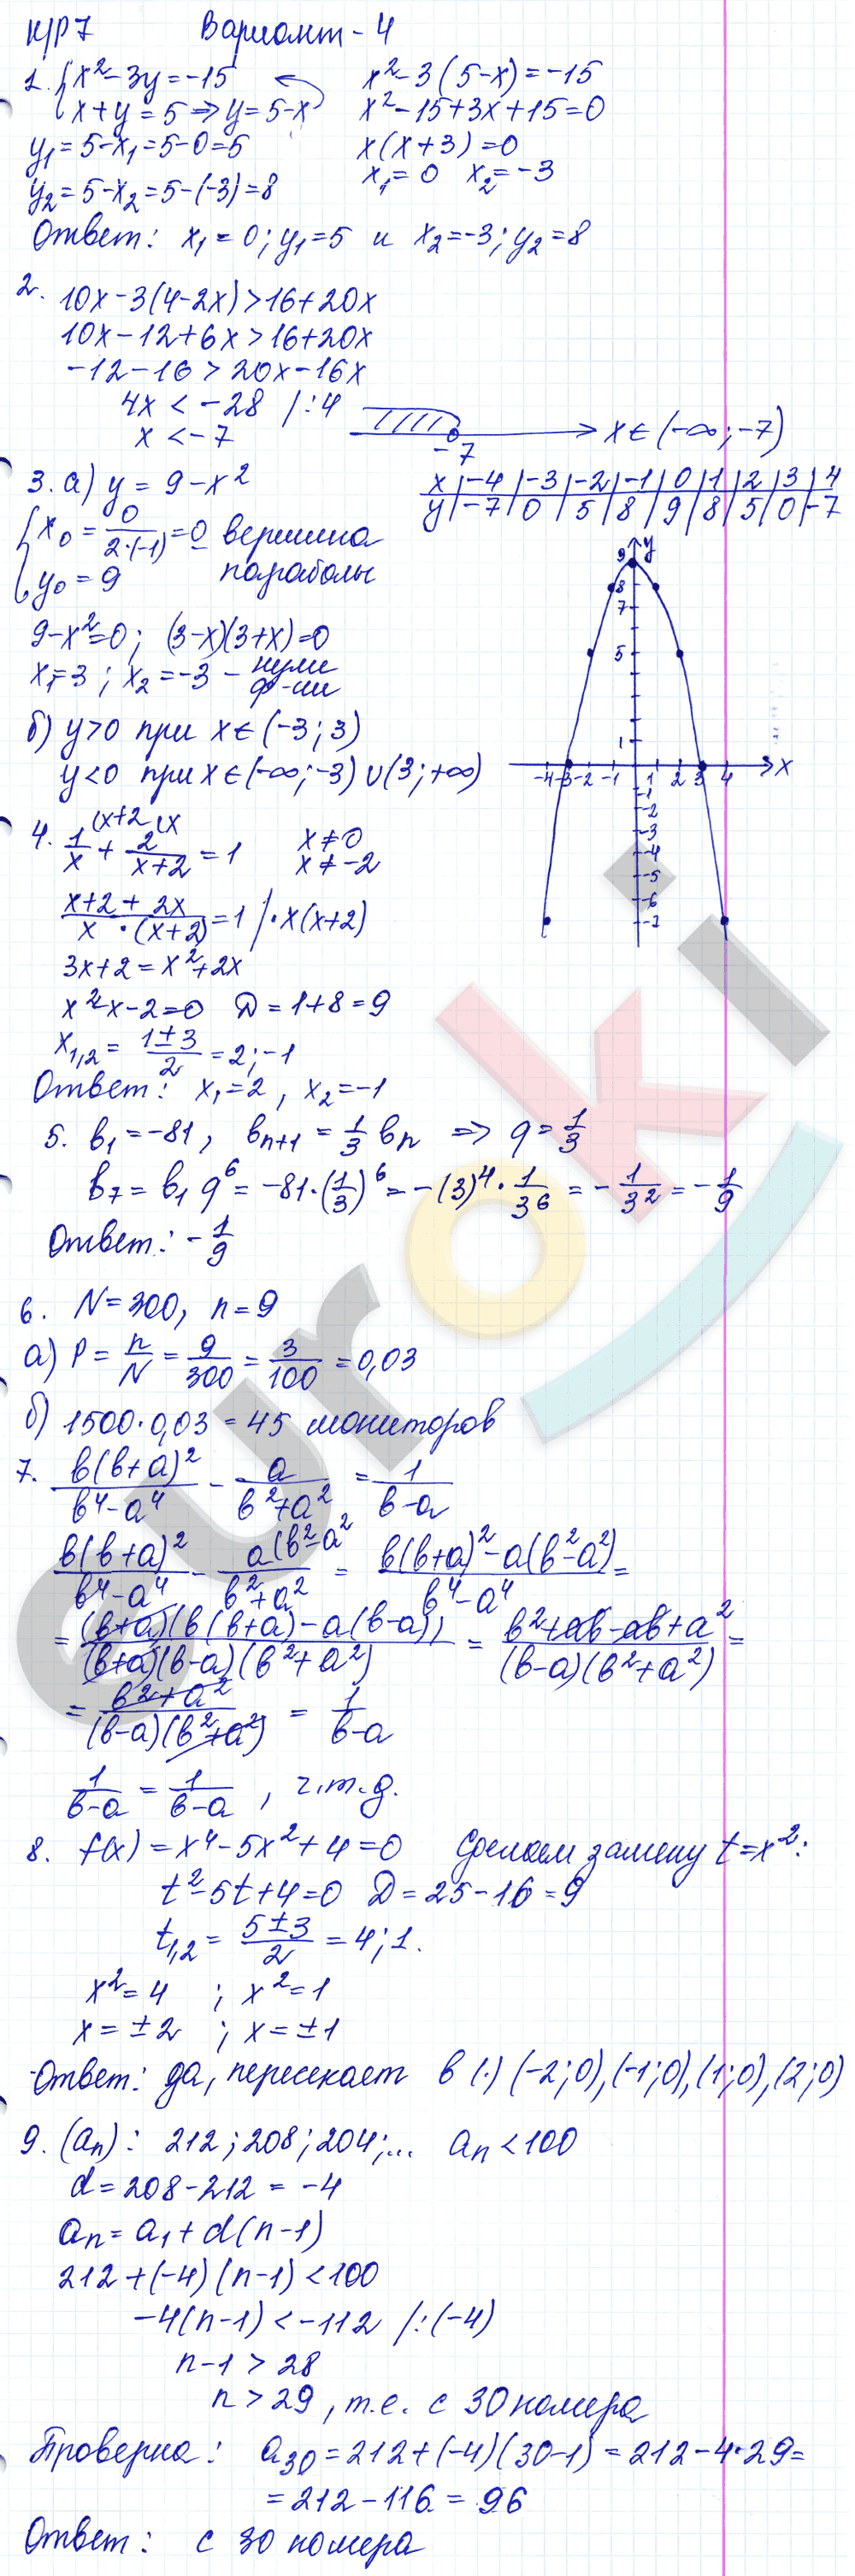 К/Р 7 Вариант - 4
1. { x² - 3y = -15
x + y = 5 ⇒ y = 5 - x
x² - 3(5 - x) = -15
x² - 15 + 3x + 15 = 0
y₁ = 5 - x₁ = 5 - 0 = 5
x(x + 3) = 0
x₁ = 0 x₂ = -3
y₂ = 5 - x₂ = 5 - (-3) = 8
Ответ: x₁ = 0; y₁ = 5 и x₂ = -3; y₂ = 8
2. 10x - 3(4 - 2x) > 16 + 20x
10x - 12 + 6x > 16 + 20x
-12 - 16 > 20x - 16x
4x < -28 /:4
x < -7
-7
x ∈ (-∞; -7)
3. а) y = 9 - x²
x | -4 | -3 | -2 | -1 | 0 | 1 | 2 | 3 | 4
y | -7 | 0 | 5 | 8 | 9 | 8 | 5 | 0 | -7
{ x₀ = 0/(2·(-1)) = 0 вершина
y₀ = 9 параболы
9 - x² = 0; (3 - x)(3 + x) = 0
x₁ = 3; x₂ = -3 - нули
ф-ии
б) y > 0 при x ∈ (-3; 3)
y < 0 при x ∈ (-∞; -3) ∪ (3; +∞)
y
9
8
7
5
1
-4 -3 -2 -1 1 2 3 4 x
-1
-2
-3
-4
-5
-6
-7
4. 1/x (x+2 + 2/(x+2) (x = 1 x ≠ 0
x ≠ -2
(x + 2 + 2x)/(x · (x + 2)) = 1 /· x(x + 2)
3x + 2 = x² + 2x
x² - x - 2 = 0 D = 1 + 8 = 9
x₁,₂ = (1 ± 3)/2 = 2; -1
Ответ: x₁ = 2, x₂ = -1
5. b₁ = -81, bₙ₊₁ = 1/3 bₙ ⇒ q = 1/3
b₇ = b₁ q⁶ = -81·(1/3)⁶ = -(3)⁴ · 1/3⁶ = - 1/3² = - 1/9
Ответ: - 1/9
6. N = 300, n = 9
а) P = n/N = 9/300 = 3/100 = 0,03
б) 1500 · 0,03 = 45 мониторов
7. b(b + a)²/(b⁴ - a⁴) - a/(b² + a²) = 1/(b - a)
b(b + a)²/(b⁴ - a⁴) - a(b² - a²/(b² + a²) = (b(b + a)² - a(b² - a²))/(b⁴ - a⁴) =
= (b + a)(b(b + a) - a(b - a))/((b + a)(b - a)(b² + a²)) = (b² + ab - ab + a²)/((b - a)(b² + a²)) =
= (b² + a²)/((b - a)(b² + a²)) = 1/(b - a)
1/(b - a) = 1/(b - a), ч.т.д.
8. f(x) = x⁴ - 5x² + 4 = 0 Сделаем замену t = x²:
t² - 5t + 4 = 0 D = 25 - 16 = 9
t₁,₂ = (5 ± 3)/2 = 4; 1.
x² = 4 ; x² = 1
x = ±2 ; x = ±1
Ответ: да, пересекает в (·) (-2; 0), (-1; 0), (1; 0), (2; 0)
9. (aₙ): 212; 208; 204; ... aₙ < 100
d = 208 - 212 = -4
aₙ = a₁ + d(n - 1)
212 + (-4)(n - 1) < 100
-4(n - 1) < -112 /:(-4)
n - 1 > 28
n > 29, т.е. с 30 номера
Проверка: a₃₀ = 212 + (-4)(30 - 1) = 212 - 4·29 =
= 212 - 116 = 96
Ответ: с 30 номера
euroki